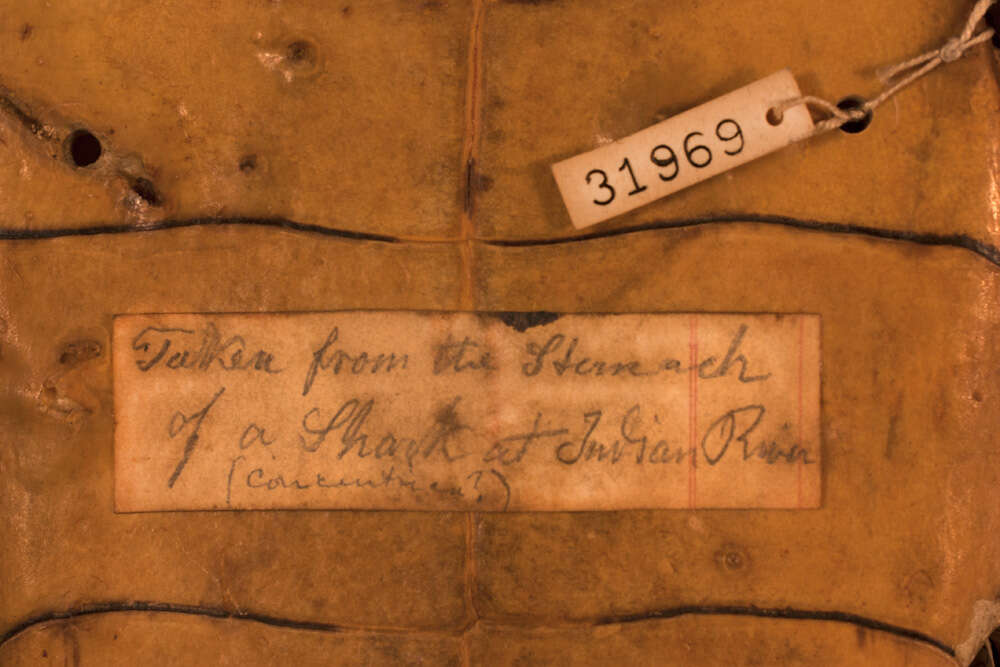 31969
Taken from the Stomach
of a Shark at Indian River